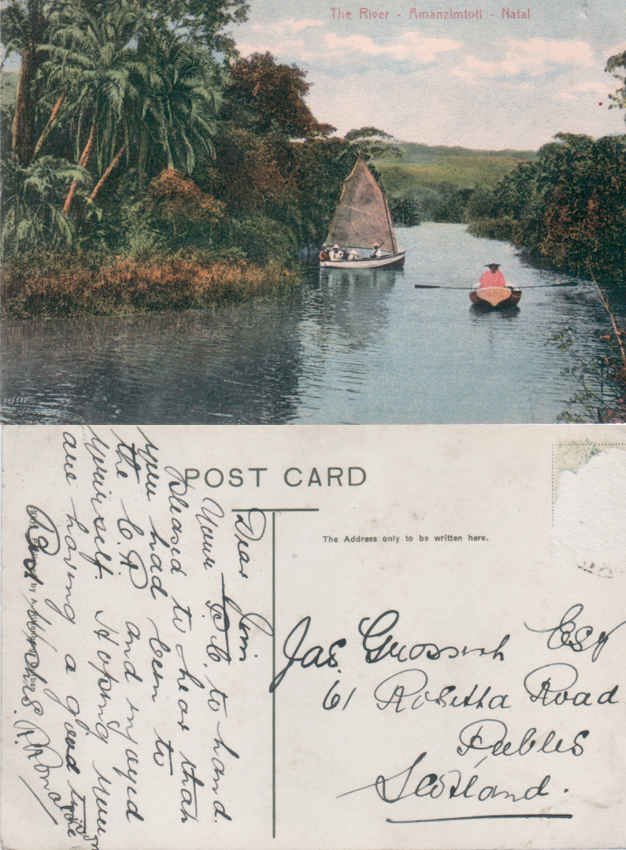 The River - Amanzimtoti - Natal
POST CARD
The Address only to be written here.
Dear Jim
Your P.C. to hand.
Pleased to hear that
you had been to
the C.P. and enjoyed
yourself. Hoping you
are having a good time
Best Wishes.
Jas. Esq
61 Rosetta Road
Peebles
Scotland.